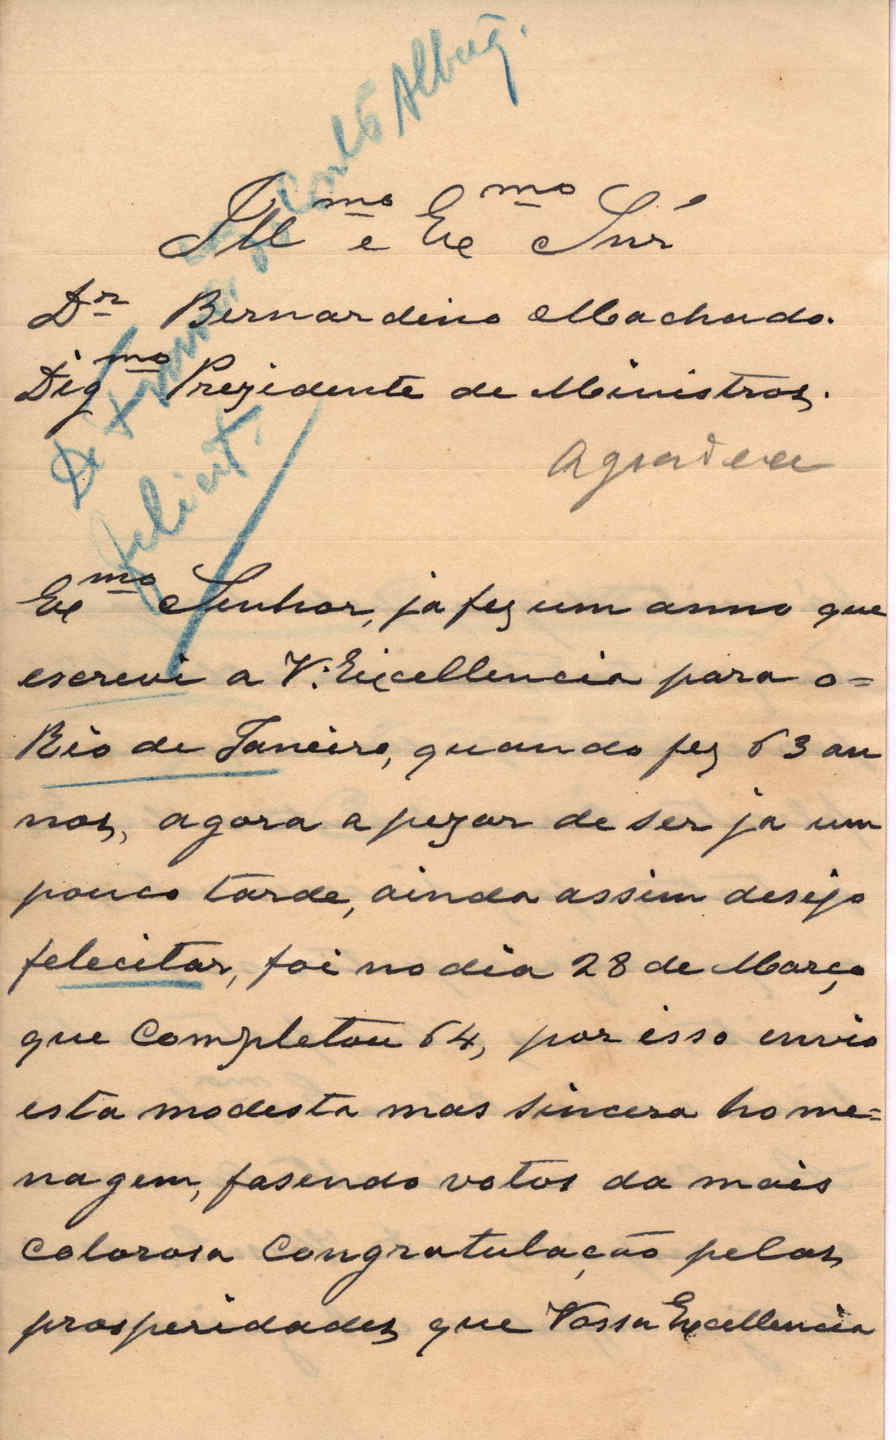 Albuq.
Illmo e Exmo Snr
Dr Bernardino Machado.
Digmo Prezidente de Ministros.
felicit.
Agradece
Exmo Senhor, ja fez um anno que
escrevi a V. Excellencia para o=
Rio de Janeiro, quando fez 63 an
nos, agora apezar de ser ja um
pouco tarde, ainda assim desejo
felecitar, foi no dia 28 de Março
que Completou 64, por isso envio
esta modesta mas sincera home=
nagem, fasendo votos da mais
Calorosa Congratulação pelas
prosperidades que Vossa Excellencia